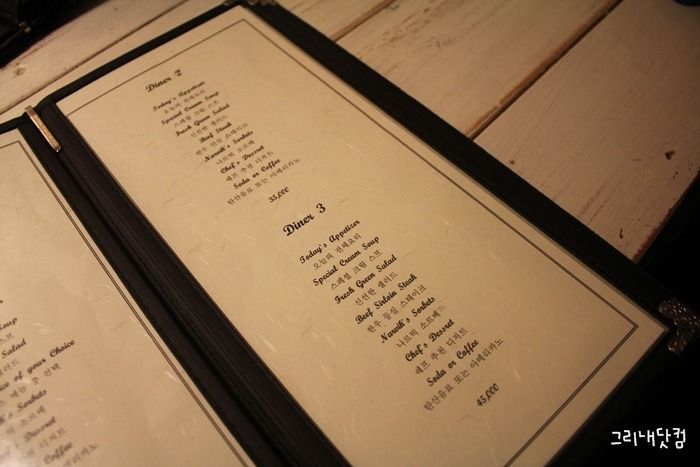 Diner 2
Today's Appetizer
오늘의 전체요리
Special Cream Soup
스페셜 크림 스프
Fresh Green Salad
신선한 샐러드
Beef Steak
한우 등심 스테이크
Narwik's Sorbets
나르빅 소르베
Chef's Dessret
쉐프 추천 디저트
Soda or Coffee
탄산음료 또는 아메리카노
35,000
Diner 3
Today's Appetizer
오늘의 전체요리
Special Cream Soup
스페셜 크림 스프
Fresh Green Salad
신선한 샐러드
Beef Sirloin Steak
한우 등심 스테이크
Narwik's Sorbets
나르빅 소르베
Chef's Dessret
쉐프 추천 디저트
Soda or Coffee
탄산음료 또는 아메리카노
45,000
Soup
Salad
of your Choice
Sorbets
Dessret
Coffee
그리내닷컴